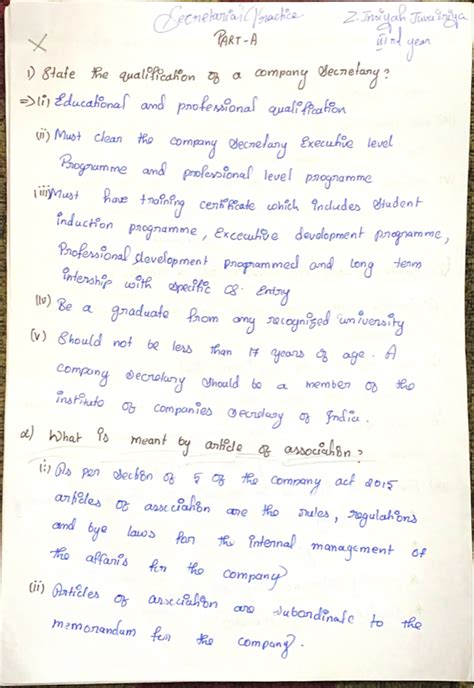 Secretarial Practice
Z. Insiyah Juvairiya
IIIrd year
PART-A
1) State the qualification of a company Secretary?
⇒ (i) Educational and professional qualification
(ii) Must clear the company Secretary Executive level
Programme and professional level programme
(iii) Must have training certificate which includes Student
induction programme, Excecutive development programme,
Professional development programmed and long term
intership with specific CS. Entry
(iv) Be a graduate from any recognized university
(v) Should not be less than 17 years of age. A
company secretary should be a member of the
institute of companies secretary of India.
2) What is meant by article of association?
(i) As per section of 5 of the company act 2015
articles of association are the rules, regulations
and bye laws for the internal management of
the affaris for the company
(ii) Articles of association are subordinate to the
memorandum for the company.